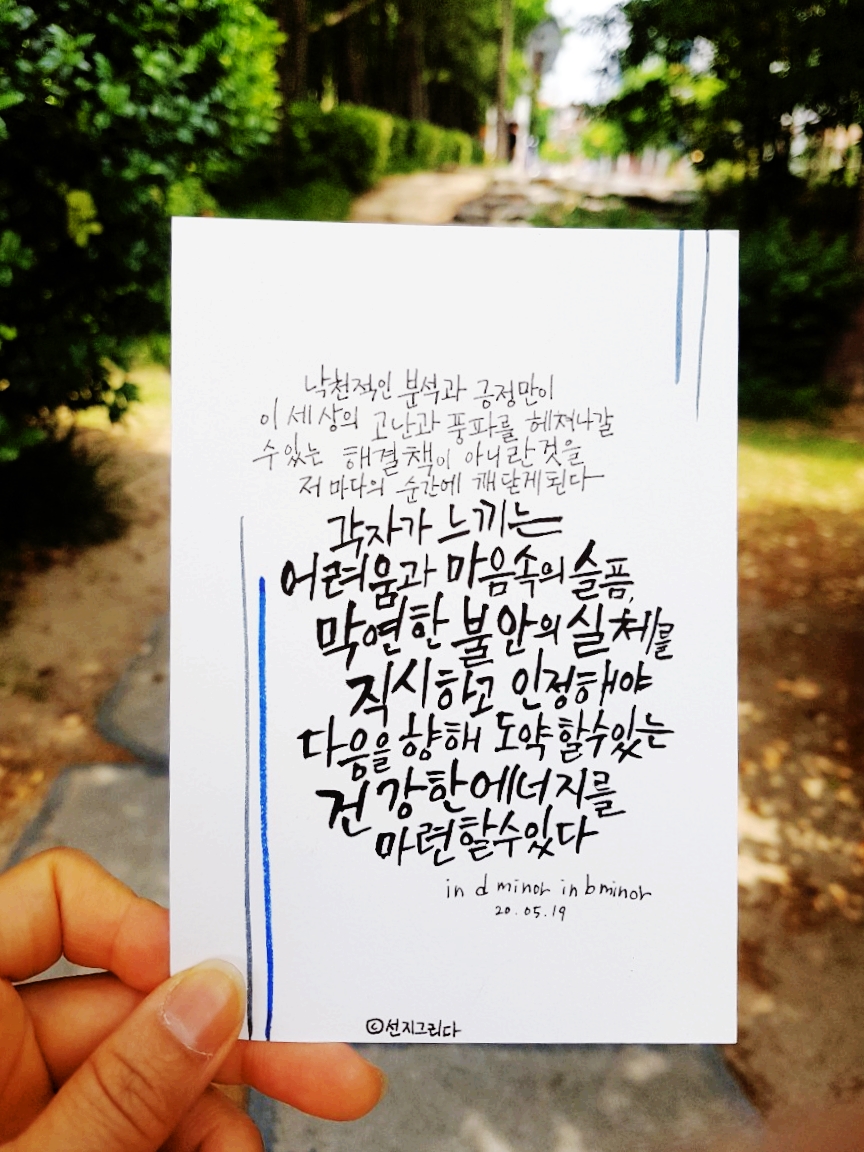 낙천적인 분석과 긍정만이
이 세상의 고난과 풍파를 헤쳐나갈
수 있는 해결책이 아니란 것을
저마다의 순간에 깨닫게된다
각자가 느끼는
어려움과 마음속의 슬픔,
막연한 불안의 실체를
직시하고 인정해야
다음을 향해 도약할수있는
건강한 에너지를
마련할수있다
in d minor in b minor
20.05.19
©선지그리다